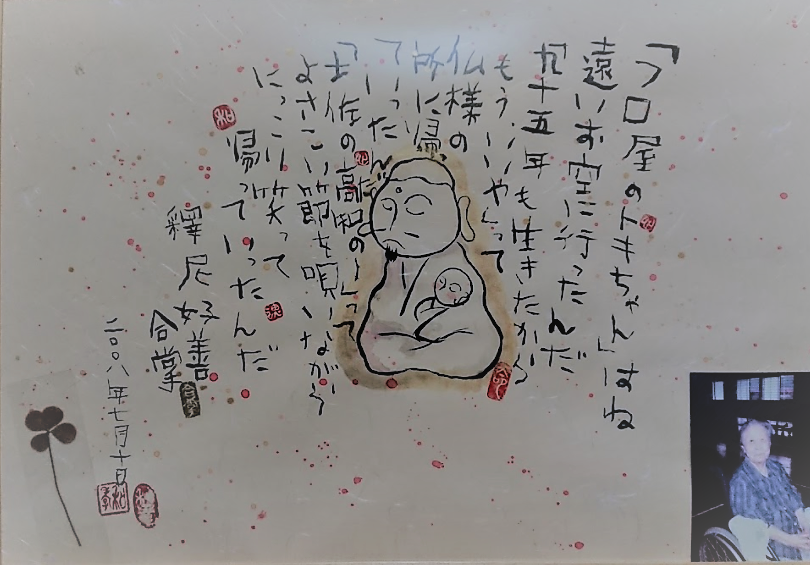 「フロ屋のトキちゃん」はね
遠いお空に行ったんだ
九十五年も生きたから
もういいやって
仏様の
所に帰
っていったんだ
「土佐の高知の〜って
よさこい節を唄いながら
にっこり笑って
帰っていったんだ
釋尼好善
合掌
二〇〇八年七月十日